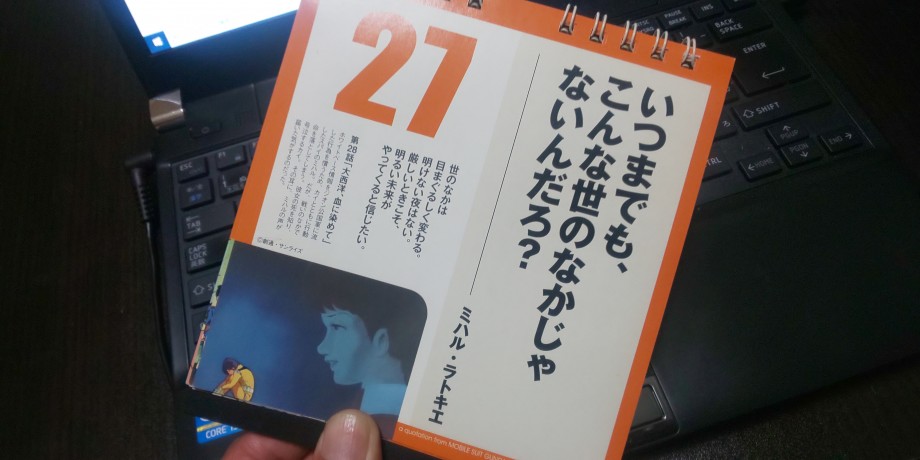 いつまでも、
こんな世のなかじゃ
ないんだろ？
ミハル・ラトキエ
27
世のなかは
目まぐるしく変わる。
明けない夜はない。
厳しいときこそ、
明るい未来が
やってくると信じたい。
第28話「大西洋、血に染めて」
©創通・サンライズ
a quotation from MOBILE SUIT
PAUSE
BREAK
INS
BACK
SPACE
ENTER
SHIFT
HOME
PGDN
END
ESC
TAB
CAPS
LOCK
SHIFT
CORE